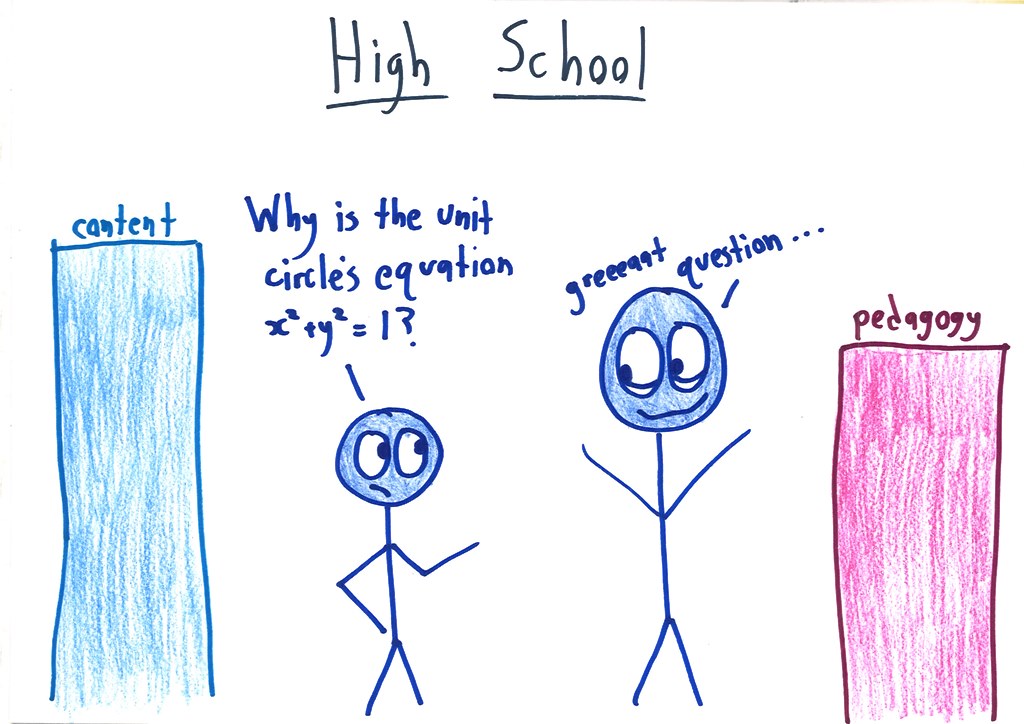 High School
content
Why is the unit
circle's equation
x²+y²=1?
greeeaat question...
pedagogy